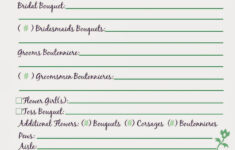 Bridal Bouquet:
( # ) Bridesmaids Bouquets:
Grooms Boutonniere:
( # ) Groomsmen Boutonnieres:
Flower Girl(s):
Toss Bouquet:
Additional Flowers: (#) Bouquets (#) Corsages (#) Boutonniere
Pews:
Aisle: